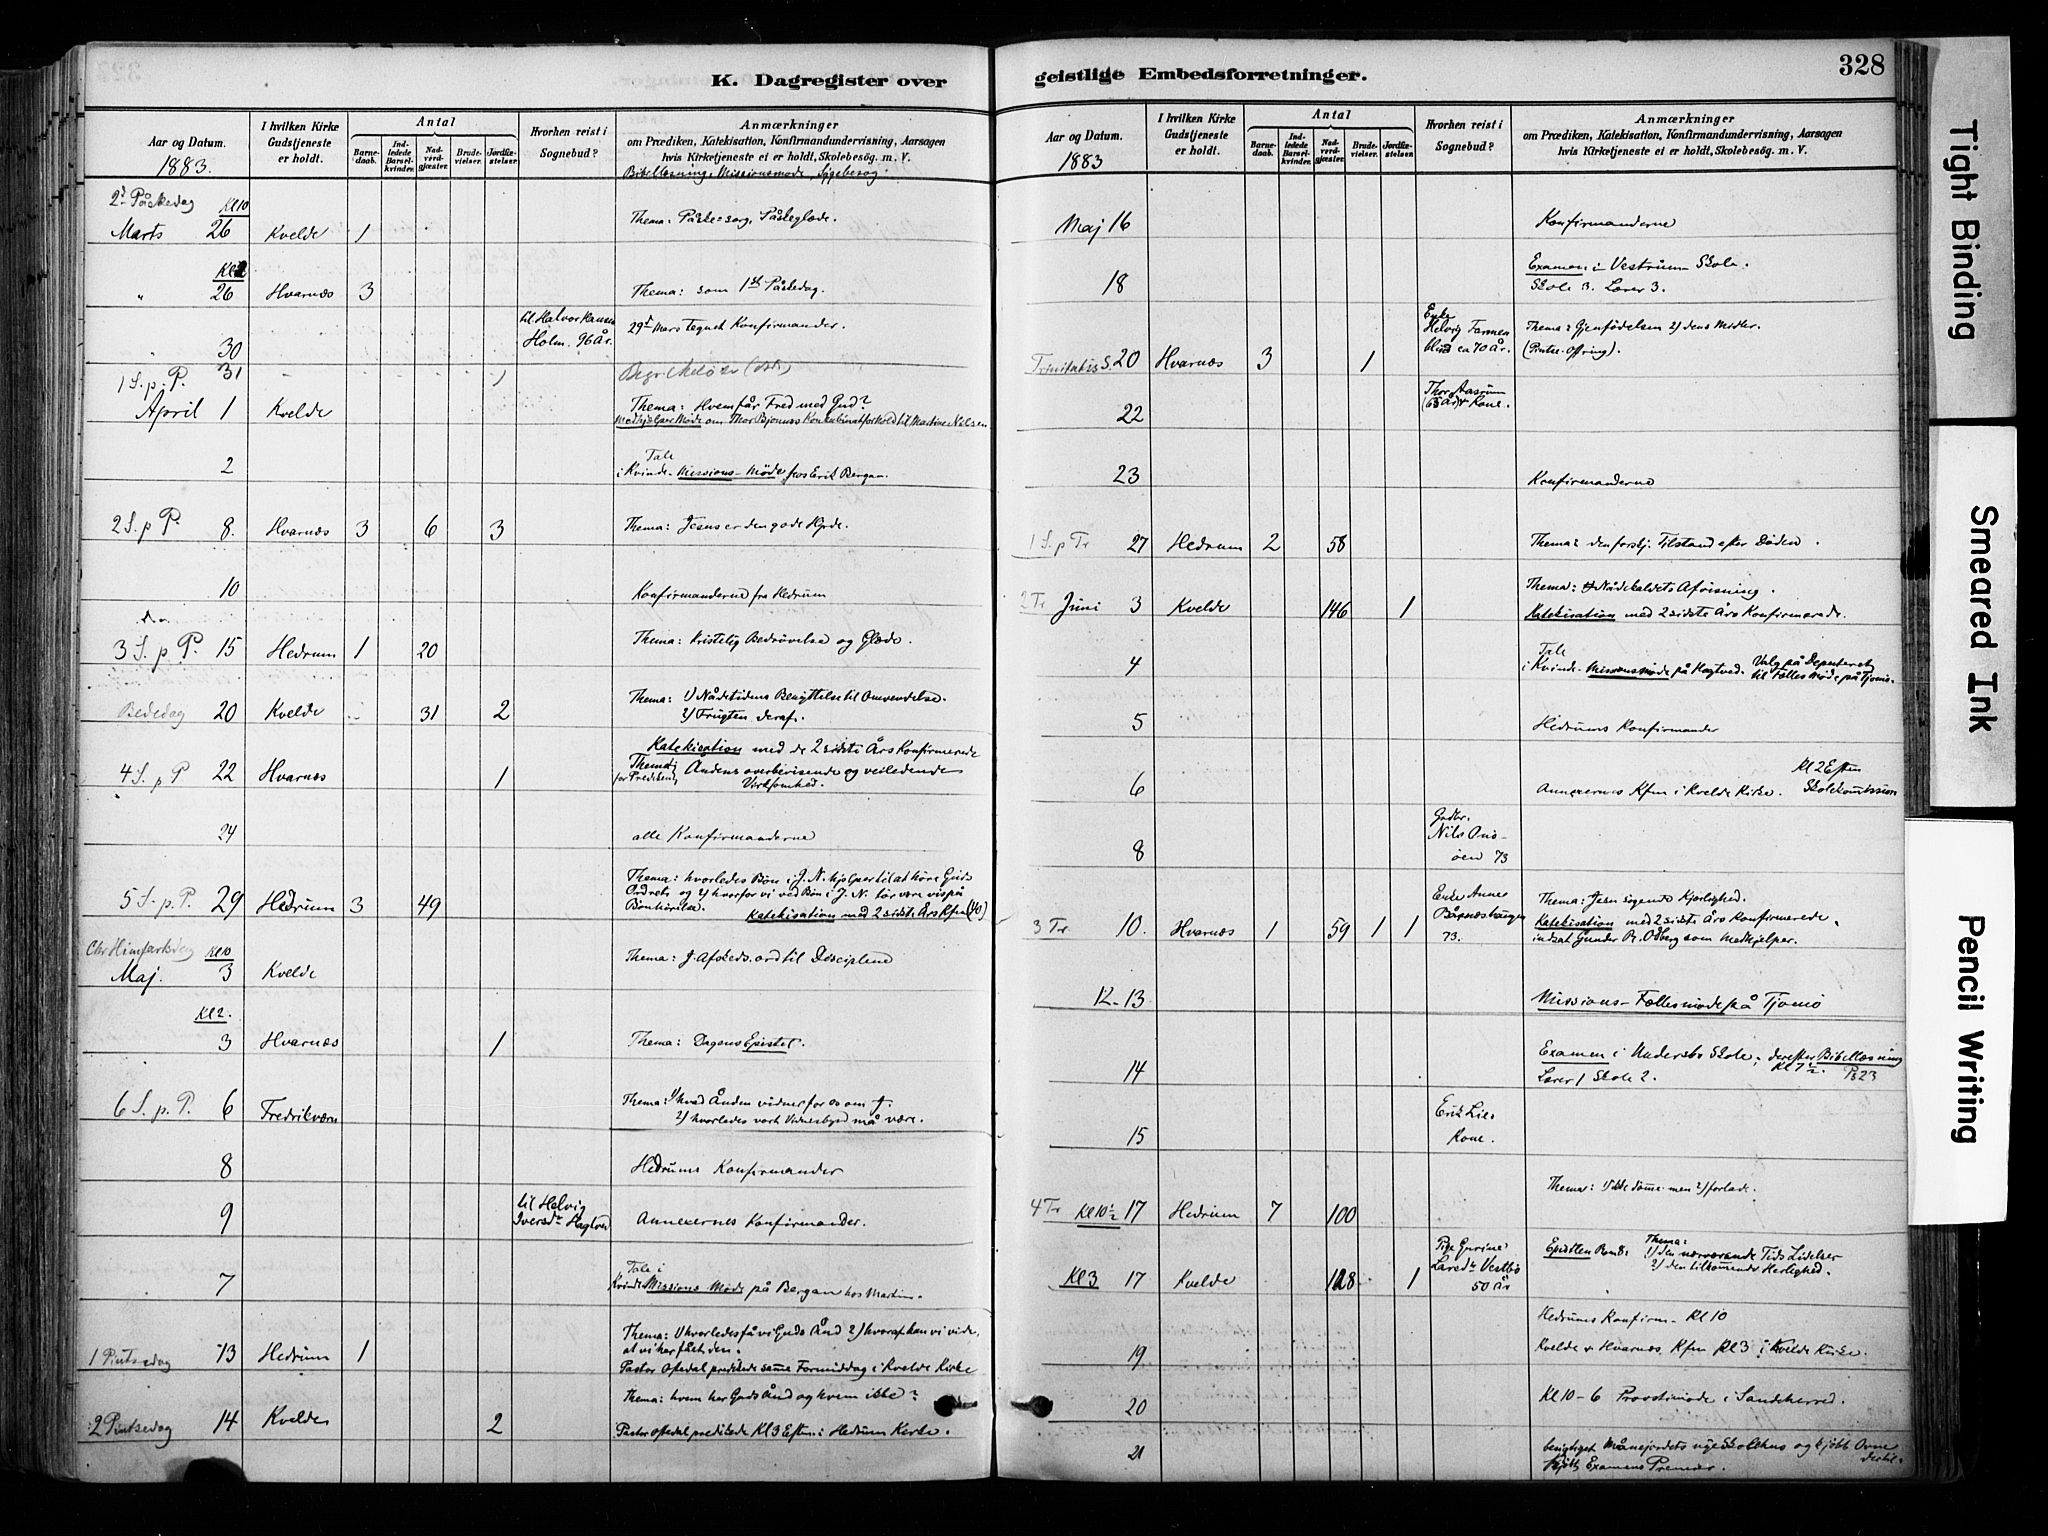 K. Dagregister over
Aar og Datum.
1883.
I hvilken Kirke Gudstjeneste er holdt.
Antal
Barnedaab.
Indledede Barselkvinder.
Nadverdgjæster.
Brudevielser.
Jordfæstelser.
Hvorhen reist i Sognebud?
Anmærkninger
om Prædiken, Katekisation, Konfirmandundervisning, Aarsagen
hvis Kirketjeneste ei er holdt, Skolebesøg. m. V.
Bibellæsning, Missionsmøde, Sygebesøg.
2d Påskedag Kl 10
Marts 26 Kvelde 1 Thema: Påske=sorg, Påskeglæde.
Kl 2
" 26 Hvarnæs 3 Thema: som 1ste Påskedag.
" 30 til Halvor Hansen Holm. 96 år. 29d Mars tegnet Konfirmander.
31 1
1 S. p. P.
April 1 Kvelde Thema: Hvem får Fred med Gud?
Medhjælper Møde om Thor Bjønnes Konkubinatforhold til Martine Nilsen
2 Tale
i Kvinde-Missions-Møde hos Erik Bergan.
2 S. p P. 8. Hvarnæs 3 6 3 Thema: Jesus er den gode Hyrde.
10 Konfirmanderne fra Hedrum
3 S. p P. 15 Hedrum 1 20 Thema: Kristelig Bedrøvelse og Glæde.
Bededag 20 Kvelde 31 2 Thema: 1) Nådetidens Benyttelse til Omvendelse.
2) Frugten deraf.
Katekisation med de 2 sidste Års Konfirmerede
4 S. p P 22 Hvarnæs 1 Thema for Prediken Åndens overbevisende og veiledende
Virksomhed.
24 alle Konfirmanderne
5 S. p. P. 29 Hedrum 3 49 Thema: hvorledes Bøn i J. N. hjælper til at høre Guds
Ordrets og 2) hvorfor vi ved Bøn i J. N. tør være vis på
Bønhørelse. Katekisation med 2 sidste Års Kfm (40)
Chr Himmelfartsdag Kl 10
Maj. 3 Kvelde Thema: J. Afskeds.ord til Disciplene
Kl 2.
3 Hvarnæs 1 Thema: Dagens Epistel.
6 S. p. P. 6 Fredriksværn Thema: 1) hvad Ånden vidner for os om J.
2) hvorledes vort Vidnesbyrd må være.
8 Hedrums Konfirmander
9 til Helvig Iversdr Hagtved Annexernes Konfirmander.
7 Tale i
Kvinde Missions Møde på Bergan hos Martin.
1 Pintsedag 13 Hedrum 1 Thema: 1) hvorledes få vi Guds Ånd 2) hvoraf kan vi vide,
at vi har fået den.
Pastor Oftedal predikede samme Formiddag i Kvelde Kirke
2 Pintsedag 14 Kvelde 2 Thema: hvem har Guds Ånd og hvem ikke?
Pastor Oftedal predikede Kl 3 Eftm. i Hedrum Kirke.
geistlige Embedsforretninger.
328
Aar og Datum.
1883
I hvilken Kirke Gudstjeneste er holdt.
Antal
Barnedaab.
Indledede Barselkvinder.
Nadverdgjæster.
Brudevielser.
Jordfæstelser.
Hvorhen reist i Sognebud?
Anmærkninger
om Prædiken, Katekisation, Konfirmandundervisning, Aarsagen
hvis Kirketjeneste ei er holdt, Skolebesøg. m. V.
Maj 16 Konfirmanderne
18 Examen i Vestrum Skole.
Skole 3. Lærer 3.
Trinitatis S. 20 Hvarnæs 3 1 Enke Helvig Farmen blind ca 70 år. Thema: Gjenfødelsen 2) dens Midler.
(Pintse-Offring).
22 Thor Aasrum (63 År) & Kone.
23 Konfirmanderne
1 S. p Tr 27 Hedrum 2 58 Thema: den forskj. Tilstand efter Døden.
2 Tr Juni 3 Kvelde 146 1 Thema: Nådekaldets Afvisning.
Katekisation med 2 sidste Års Konfirmerede.
4 Tale
i Kvinde-Missionsmøde på Hagtved. Valg på Deputeret
til Fælles Møde på Tjømø.
5 Hedrums Konfirmander
6 Annexernes Kfm i Kvelde Kirke. Kl 2 Eftm
Skolekommission
8 Gadbr. Nils Omsøen 73
3 Tr 10. Hvarnæs 1 59 1 1 Enke Anne 73. Thema: Jesu søgende Kjærlighed.
Katekisation med 2 sidste Års Konfirmerede.
indsat Gunder R. Odberg som Medhjælper.
12-13 Missions-Fællesmøde på Tjømø
14 Examen i Undersbo Skole; derefter Bibellæsning
Lærer 1 Skole 2. Kl 7½. Ps 23
15 Erik Lie's Kone.
4 Tr Kl 10½ 17 Hedrum 7 100 Thema: ikke dømme men 2) forlade.
Kl 3 17 Kvelde 128 1 Pige Gurine Larsdr Vestbø 50 år Epistlen Rom 8: Thema:
1) den nærværende Tids Lidelser
2) den tilkommende Herlighed.
19 Hedrums Konfirm. Kl 10
Kvelde & Hvarnæs Kfm Kl 3 i Kvelde Kirke.
20 Kl 10-6 Provstimøde i Sandeherred.
21 besigtiget Månejordets nye Skolehus og kjøbt Ovne
dertil.
kjøbt Examens Premier.
Tight Binding
Smeared Ink
Pencil Writing